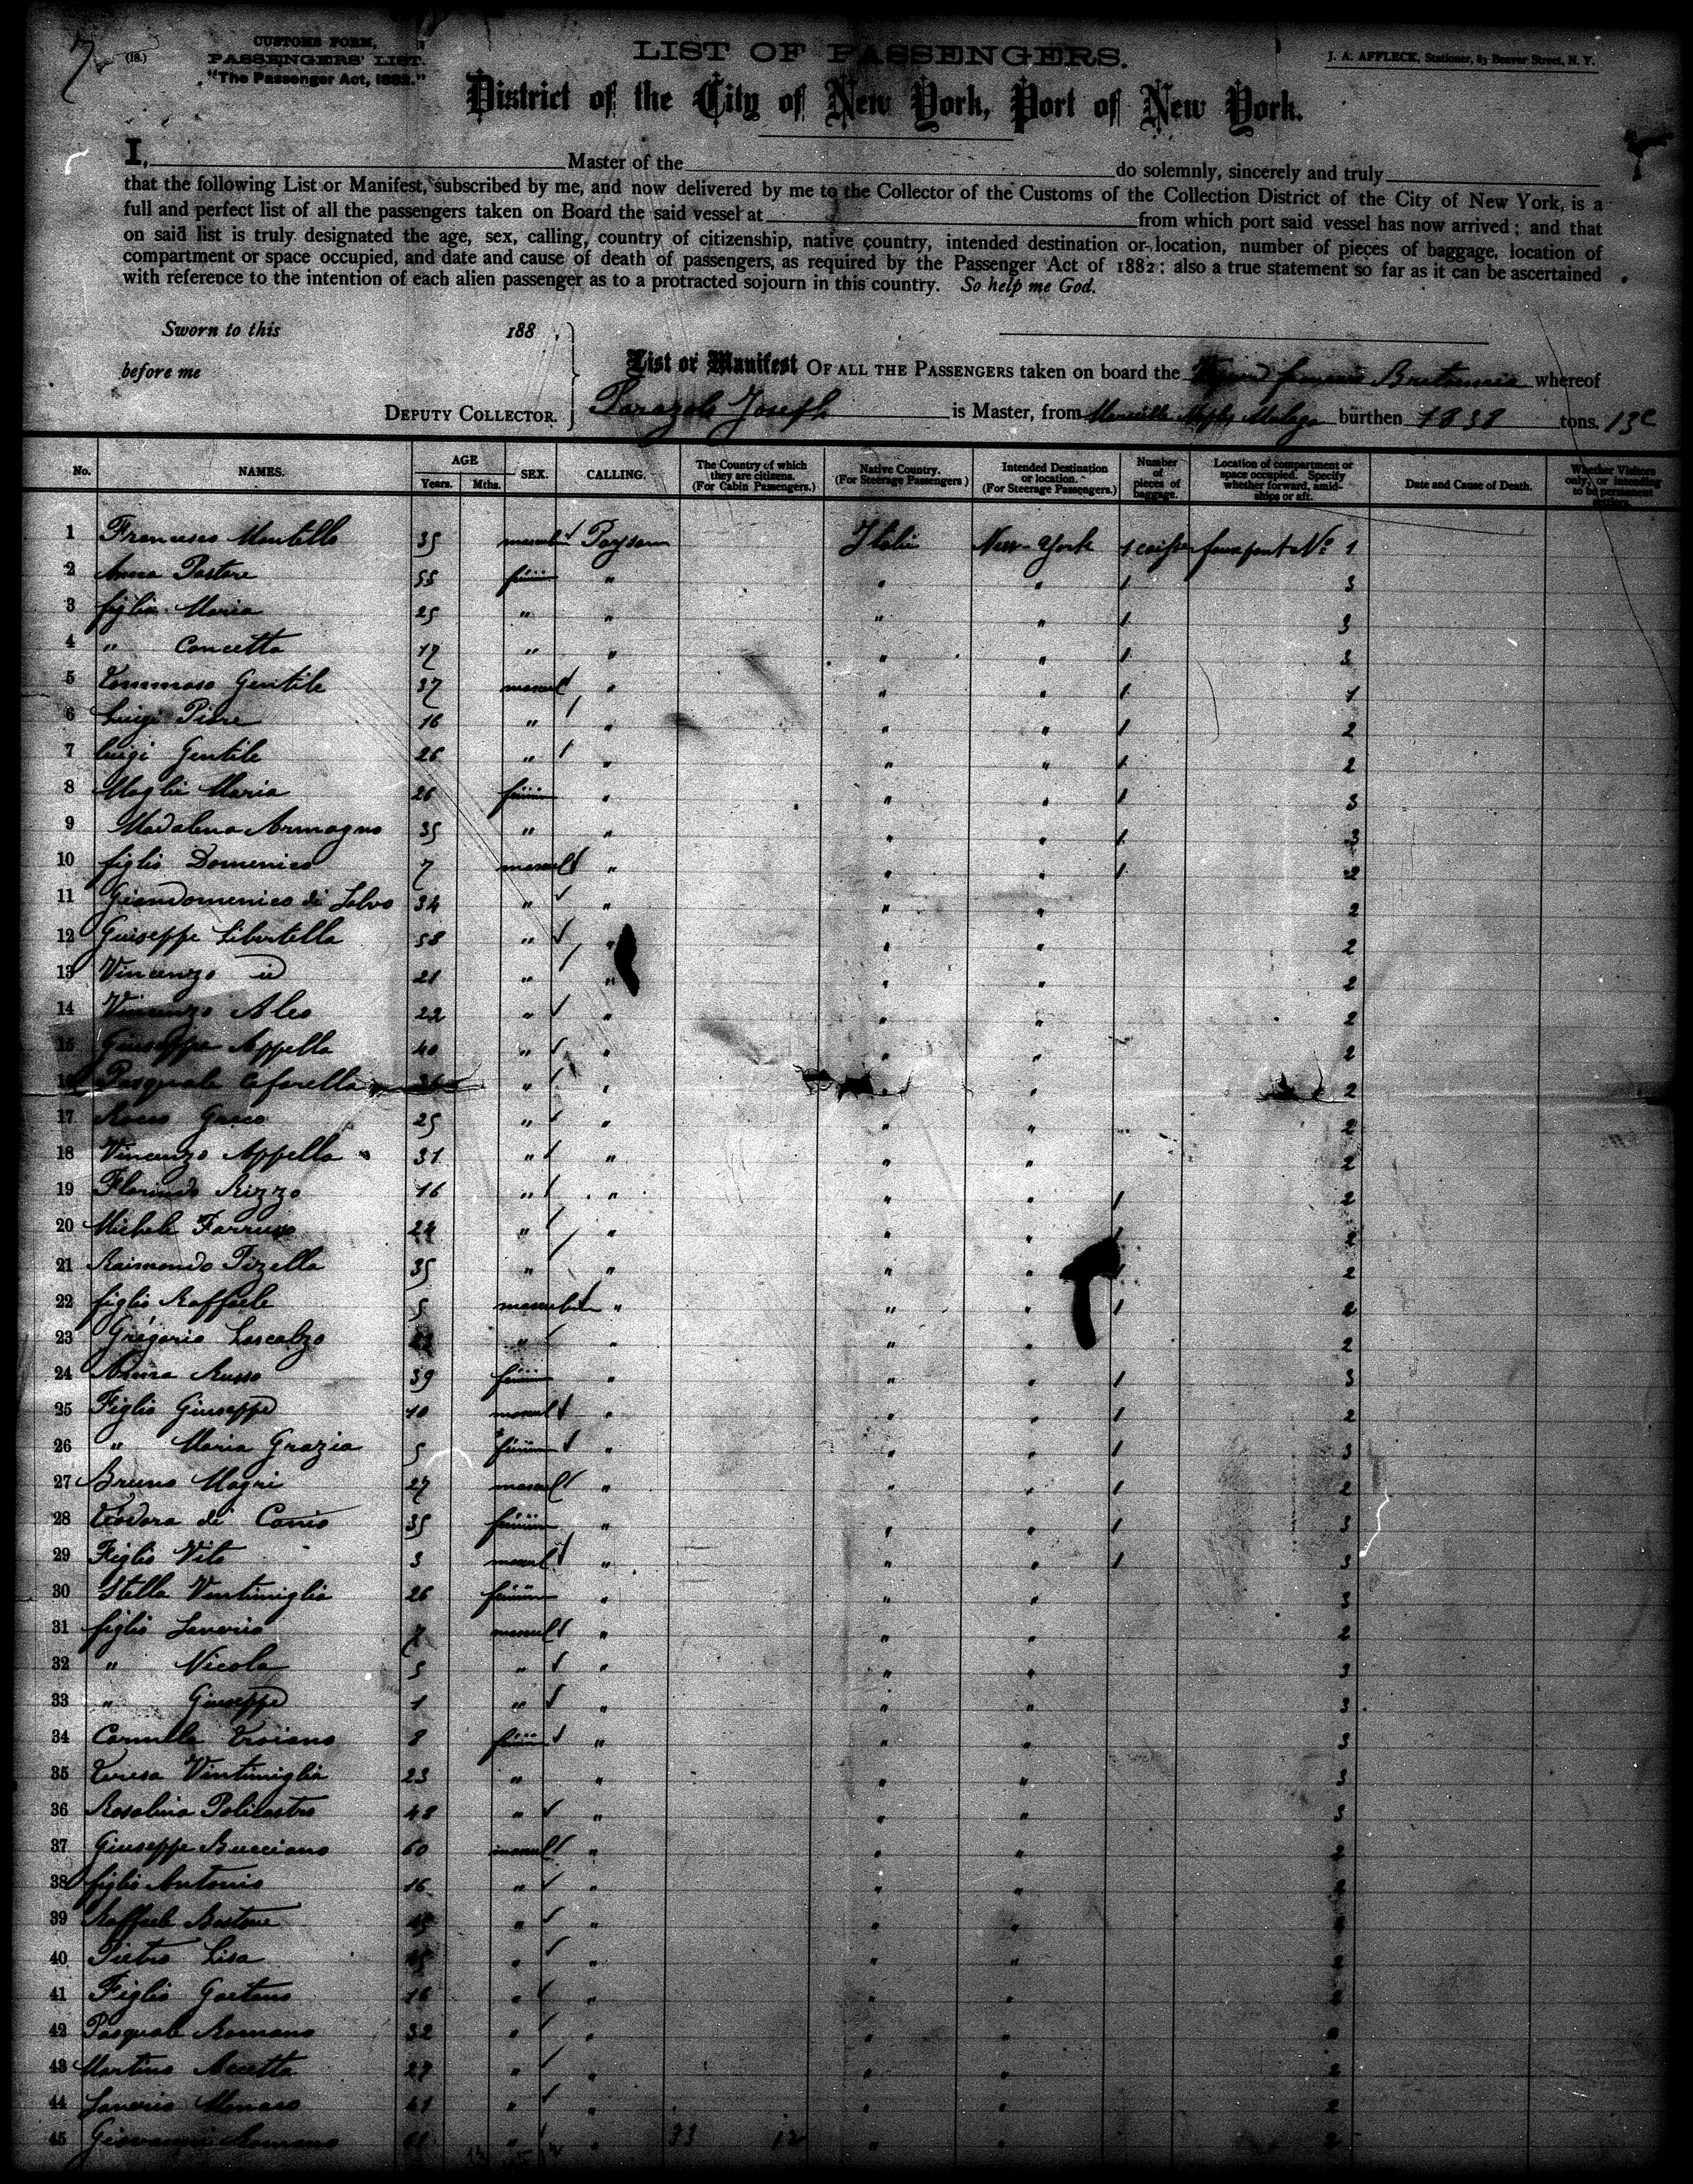 7
(18.)
CUSTOMS FORM,
PASSENGERS' LIST.
"The Passenger Act, 1882."
LIST OF PASSENGERS.
J. A. AFFLECK, Stationer, 83 Beaver Street, N. Y.
District of the City of New York, Port of New York.
I, Master of the do solemnly, sincerely and truly
that the following List or Manifest, subscribed by me, and now delivered by me to the Collector of the Customs of the Collection District of the City of New York, is a
full and perfect list of all the passengers taken on Board the said vessel at from which port said vessel has now arrived; and that
on said list is truly designated the age, sex, calling, country of citizenship, native country, intended destination or location, number of pieces of baggage, location of
compartment or space occupied, and date and cause of death of passengers, as required by the Passenger Act of 1882: also a true statement so far as it can be ascertained
with reference to the intention of each alien passenger as to a protracted sojourn in this country. So help me God.
Sworn to this 188
before me
DEPUTY COLLECTOR.
List or Manifest OF ALL THE PASSENGERS taken on board the whereof
Joseph is Master, from Marseille Naples Malaga burthen 1838 tons.
No. NAMES. AGE Years. Mths. SEX. CALLING. The Country of which they are citizens. (For Cabin Passengers.) Native Country. (For Steerage Passengers) Intended Destination or location. (For Steerage Passengers.) Number of pieces of baggage. Location of compartment or space occupied. Specify whether forward, amidships or aft. Date and Cause of Death. Whether Visitors only, or intending to be permanent
1 Francesco 35 Paysan Italie New-York 1 No 1
2 Anna Pastore 55 " " " 1 3
3 figlia Maria 25 " " " " 1 3
4 " Concetta 17 " " " " 1 3
5 Tommaso Gentile 37 mascul " " " 1 1
6 Luigi 16 " " " " 1 2
7 Luigi Gentile 26 " " " " 1 2
8 Maglie Maria 26 " " " 1 3
9 Madalena Armagno 35 " " " " 1 3
10 figlio Domenico 7 mascul " " " 1 2
11 Giandomenico di Salvo 34 " " " " 2
12 Guiseppe Libertella 58 " " " " 2
13 Vincenzo id 21 " " " " 2
14 Vincenzo Aleo 22 " " " " 2
15 Giuseppe Appella 40 " " " " 2
16 Pasquale Cafarella 36 " " " " 2
17 Rocco Greco 25 " " " " 2
18 Vincenzo Appella 31 " " " " 2
19 Florindo Rizzo 16 " " " " 1 2
20 Michele 24 " " " " 1
21 Raimondo Pizella 35 " " " " 2
22 figlio Raffaele 5 " " " 1 2
23 Gregorio Lascalzo " " " " 2
24 Russo 39 " " " 1 3
25 Figlio Giuseppe 10 mascul " " " 1 2
26 " Maria Grazia 5 " " " 1 3
27 Bruno Magri 27 mascul " " " 1 2
28 Teodora di Canio 35 " " " 1 3
29 Figlio Vito 3 mascul " " " 1 3
30 Stella Ventimiglia 26 " " " 3
31 figlio Saverio 7 mascul " " " 2
32 " Nicola 5 " " " " 3
33 " Giuseppe 1 " " " " 3
34 Carmella Troiano 8 " " " 3
35 Teresa Vintimiglia 23 " " " " 3
36 Rosalina Policastro 48 " " " " 3
37 Giuseppe Bucciano 60 mascul " " " 2
38 figlio Antonio 16 " " " "
39 Raffaele " " " "
40 Pietro Lisa " " " " 2
41 Figlio Gaetano 16 " " " "
42 Pasquale Romano 32 " " " "
43 Martino 27 " " " " 2
44 Saverio Monaco 41 " " " " 2
45 Giovanni Romano " " " 2
33 12